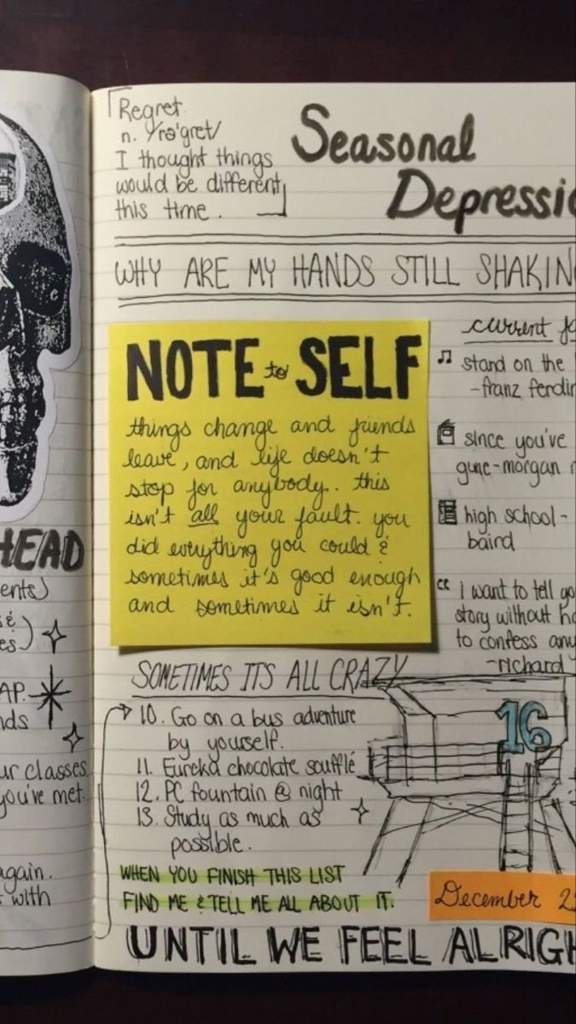 Regret
n. /rə'gret/
I thought things
would be different
this time.
Seasonal
Depressio
WHY ARE MY HANDS STILL SHAKIN
NOTE to SELF
things change and friends
leave, and life doesn't
stop for anybody.. this
isn't all your fault. you
did everything you could &
sometimes it's good enough
and sometimes it isn't.
current f
♫ stand on the
-franz ferdin
since you've
gune-morgan
high school-
baird
" i want to tell yo
story without h
to confess any
-richard
SOMETIMES ITS ALL CRAZY
10. Go on a bus adventure
by yourself.
11. Eureka chocolate soufflé
12. PC fountain @ night
13. Study as much as
possible.
16
WHEN YOU FINISH THIS LIST
FIND ME & TELL ME ALL ABOUT IT.
December 2
UNTIL WE FEEL ALRIGH
HEAD
ents)
&
es)
AP.
nds
ur classes
you've met.
again.
with